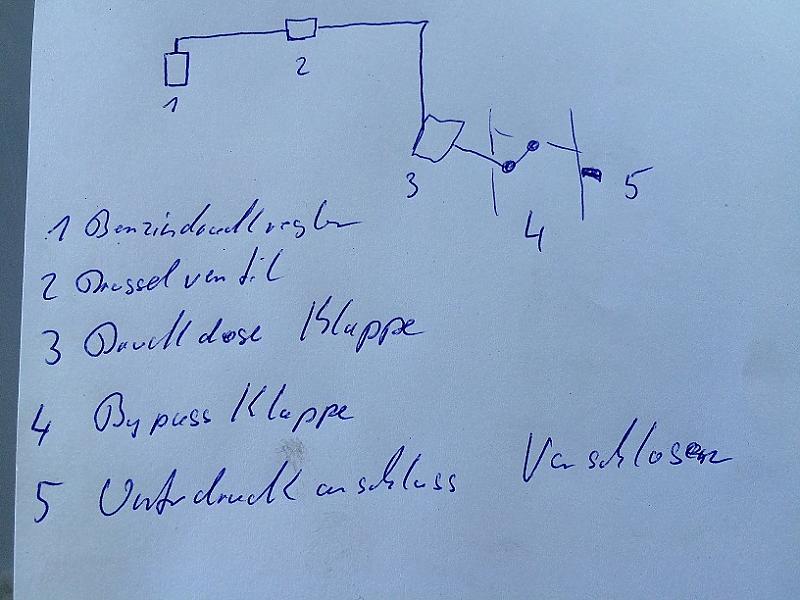 1
2
3
4
5
1 Benzindruckregler
2 Drosselventil
3 Druckdose Klappe
4 Bypass Klappe
5 Unterdruckanschluss Verschlosen